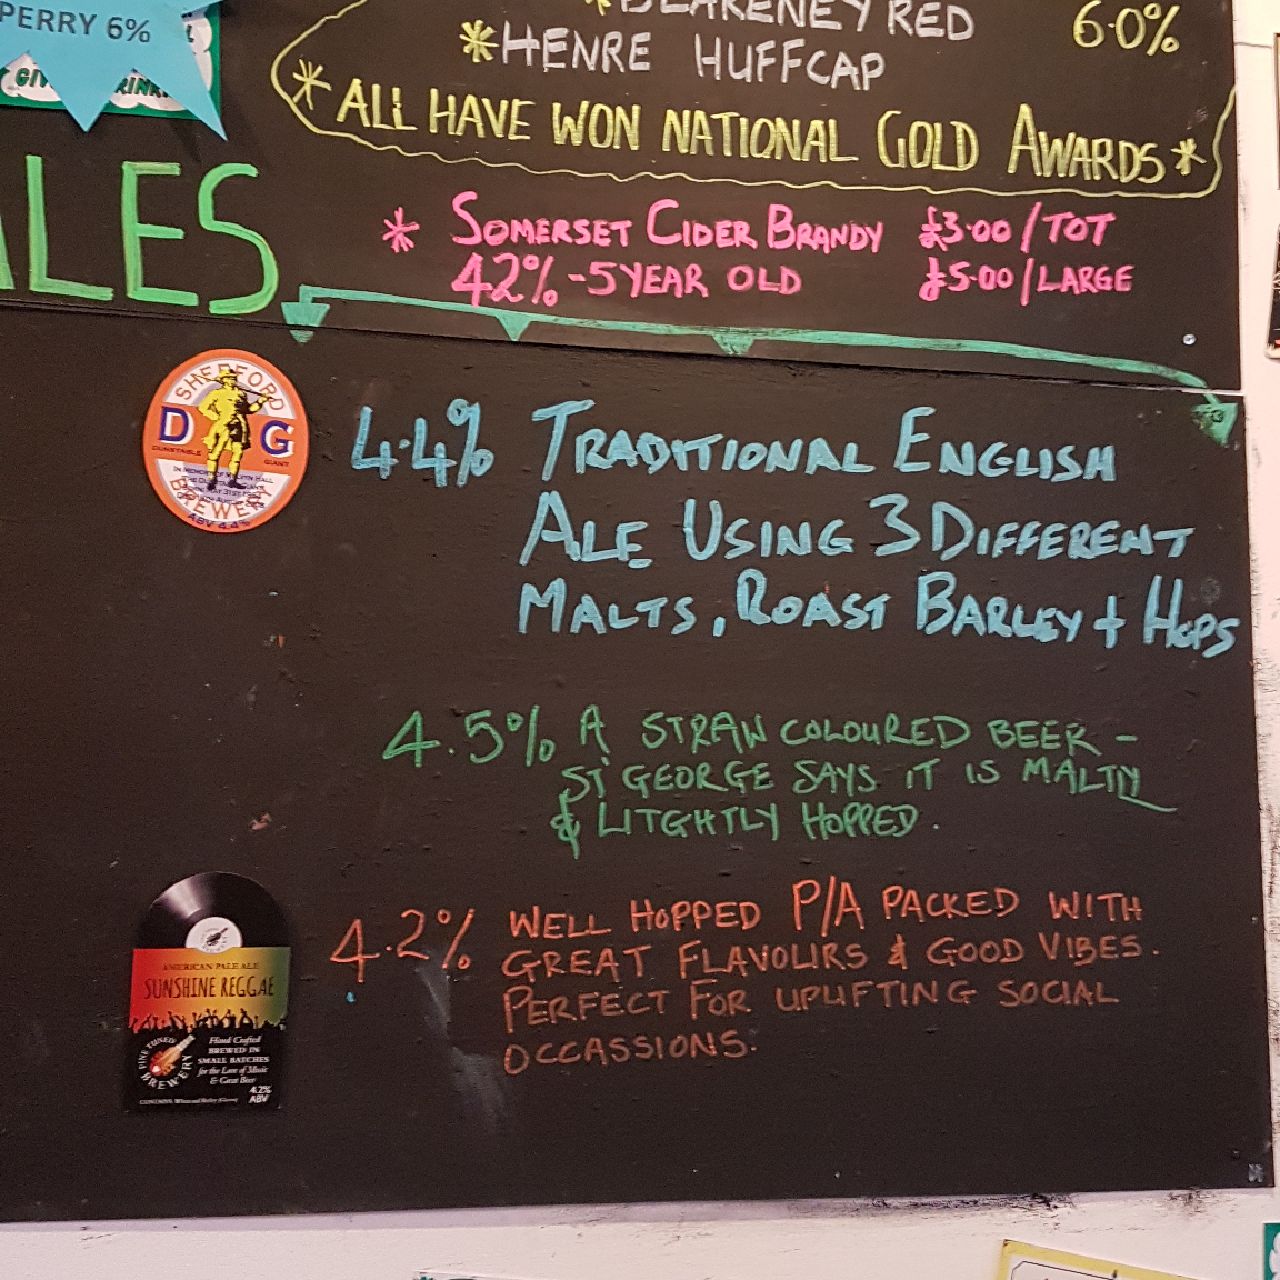 PERRY 6%
BLAKENEY RED 6.0%
*HENRE HUFFCAP
*ALL HAVE WON NATIONAL GOLD AWARDS*
ALES
* SOMERSET CIDER BRANDY £3.00/TOT
42% - 5 YEAR OLD £5.00/LARGE
SHEFFORD
D G
DUNSTABLE GIANT
BREWERY
ABV 4.4%
4.4% TRADITIONAL ENGLISH
ALE USING 3 DIFFERENT
MALTS, ROAST BARLEY + HOPS
4.5% A STRAW COLOURED BEER -
ST GEORGE SAYS IT IS MALTY
& LITGHTLY HOPPED.
4.2% WELL HOPPED P/A PACKED WITH
GREAT FLAVOURS & GOOD VIBES.
PERFECT FOR UPLIFTING SOCIAL
OCCASSIONS.
AMERICAN PALE ALE
SUNSHINE REGGAE
FINE TUNED BREWERY
Hand Crafted
BREWED IN
SMALL BATCHES
for the Love of Music
& Great Beer
4.2%
ABV